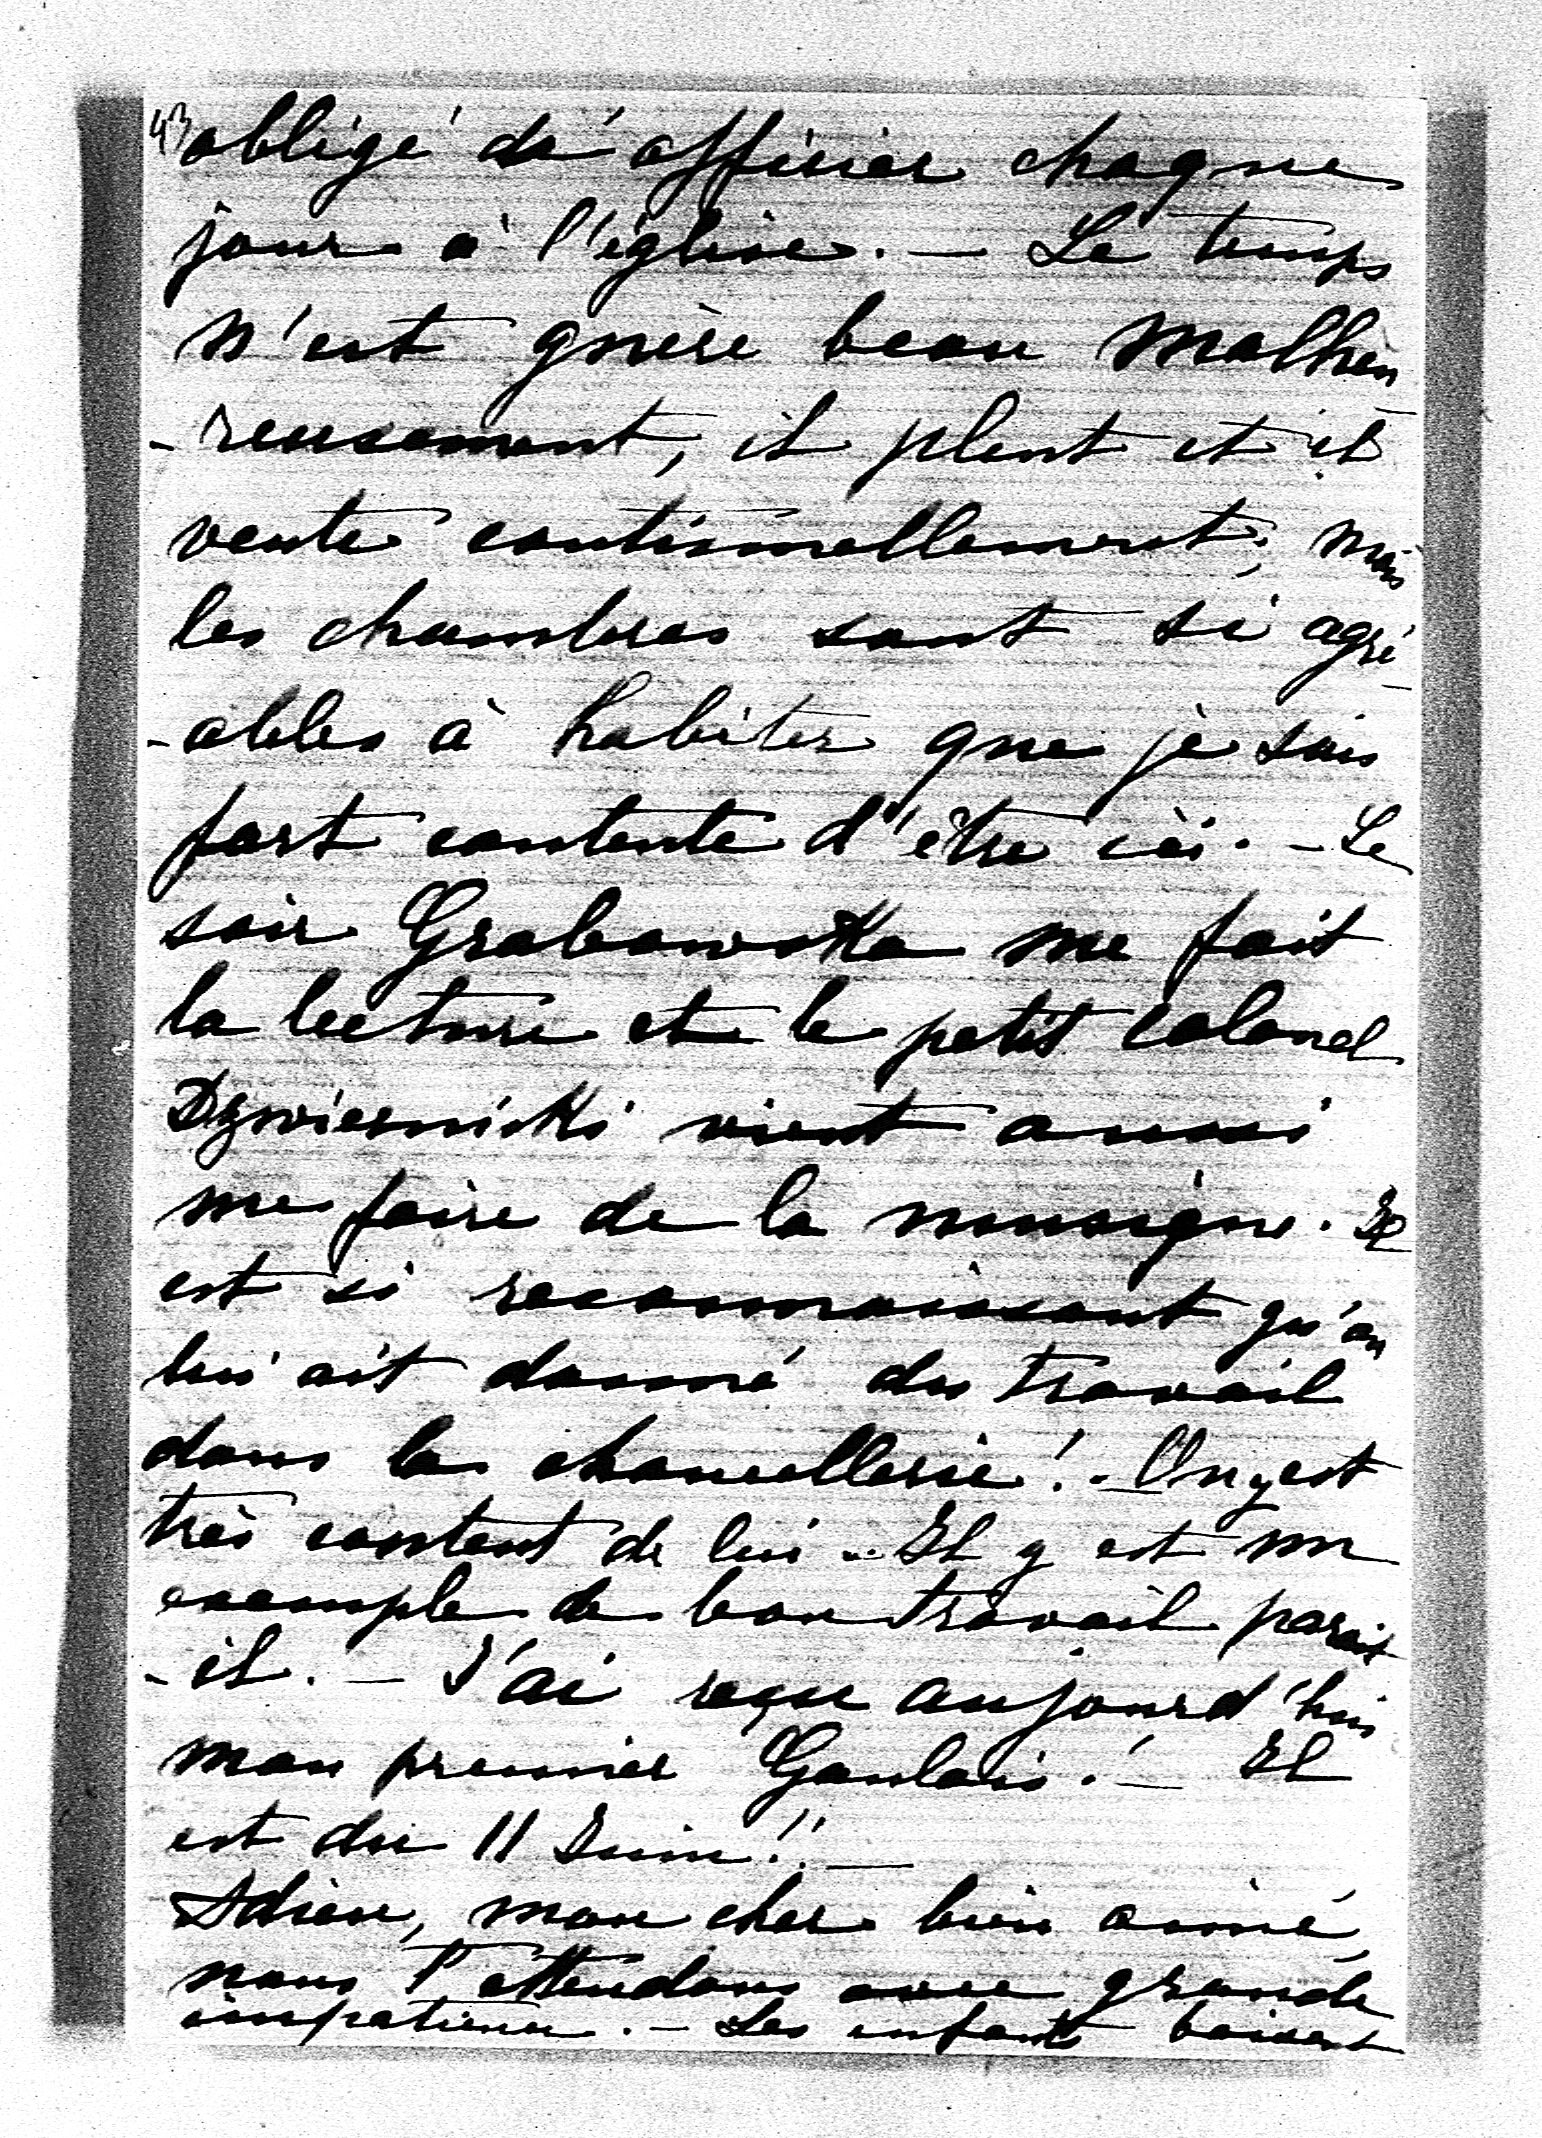 43 obligé d'officier chaque
jour à l'église. — Le temps
n'est guère beau malheu
-reusement, il pleut et il
vente continuellement, mais
les chambres sont si agré-
-ables à habiter que je suis
fort contente d'être ici. — Le
soir Grabowska me fait
la lecture et le petit colonel
Dzwiernicki vient aussi
me faire de la musique. Il
est si reconnaissant qu'on
lui ait donné du travail
dans la chancellerie! - On y est
très content de lui - Il y est un
exemple de bon travail parait
-il. — J'ai reçu aujourd'hui
mon premier Gaulois! — Il
est du 11 Juin!! —
Adieu, mon cher bien aimé,
nous t'attendons avec grande
impatience. — Les enfants baisent